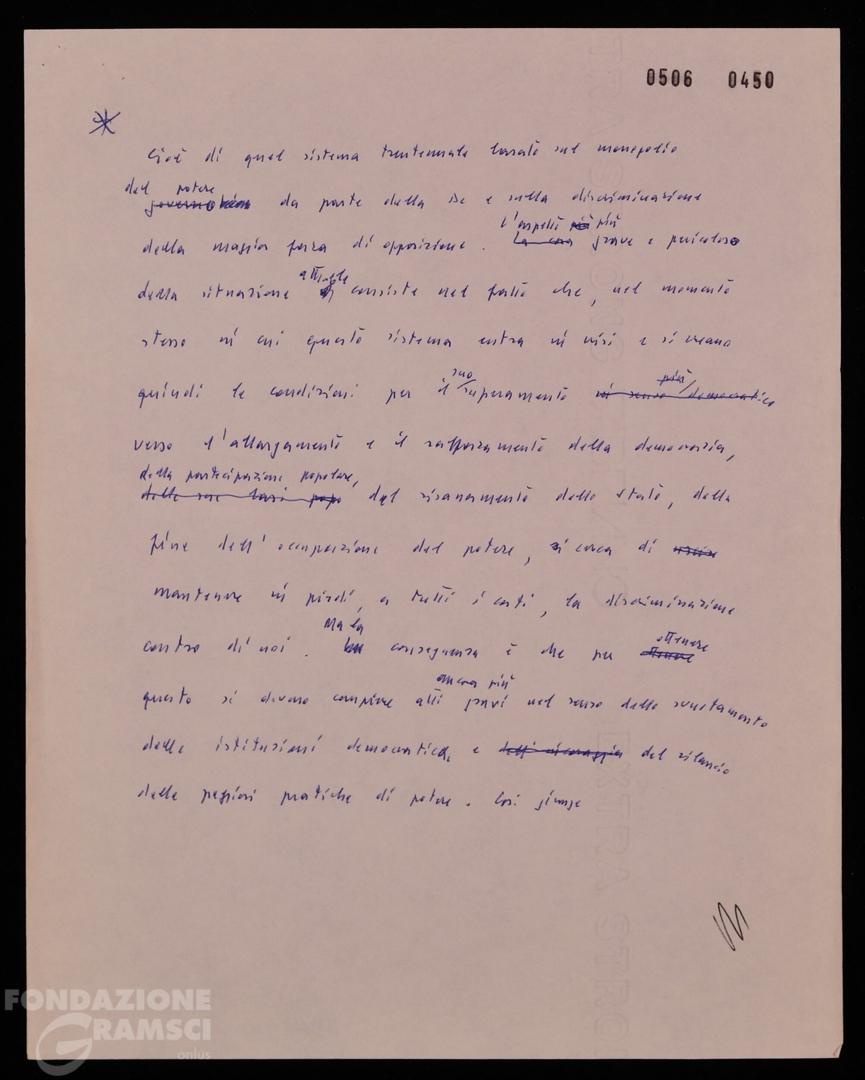 0506 0450
*
Cioè di quel sistema trentennale basato sul monopolio
del potere
governativo da parte della DC e sulla discriminazione
l'aspetto più più
della maggior forza di opposizione. La cosa grave e pericoloso
attuale
della situazione consiste nel fatto che, nel momento
stesso in cui questo sistema entra in crisi e si creano
suo più
quindi le condizioni per il superamento in senso democratico
verso l'allargamento e il rafforzamento della democrazia,
della partecipazione popolare,
delle sue basi popo del risanamento dello Stato, della
fine dell'occupazione del potere, si cerca di
mantenere in piedi, a tutti i costi, la discriminazione
Ma la ottenere
contro di noi. conseguenza è che per
ancora più
questo si devono compiere atti gravi nel senso dello svuotamento
delle istituzioni democratiche, e del rilancio
delle peggiori pratiche di potere. Così giunge
FONDAZIONE
GRAMSCI
onlus